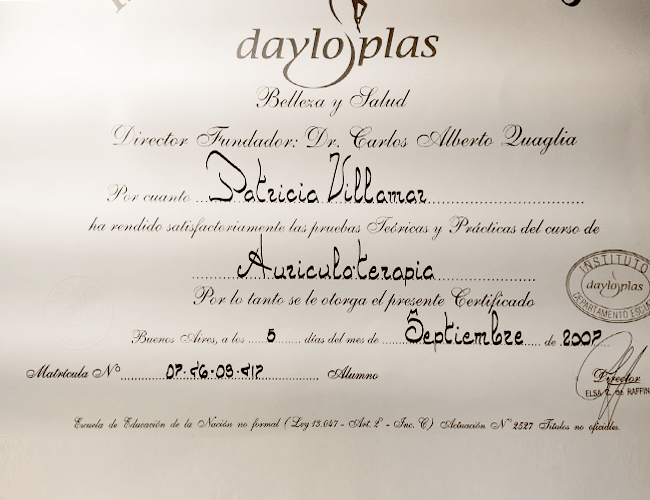 dayloplas
Belleza y Salud
Director Fundador: Dr. Carlos Alberto Quaglia
Por cuanto Patricia Villamar
ha rendido satisfactoriamente las pruebas Teóricas y Prácticas del curso de
Auriculoterapia
Por lo tanto se le otorga el presente Certificado
Buenos Aires, a los 5 días del mes de Septiembre de 2007
Matrícula Nº Alumno
INSTITUTO
dayloplas
DEPARTAMENTO
Director
ELSA
Escuela de Educación de la Nación no formal (Ley 13.047 - Art. 2º - Inc. C) Actuación Nº 2527 Títulos no oficiales.